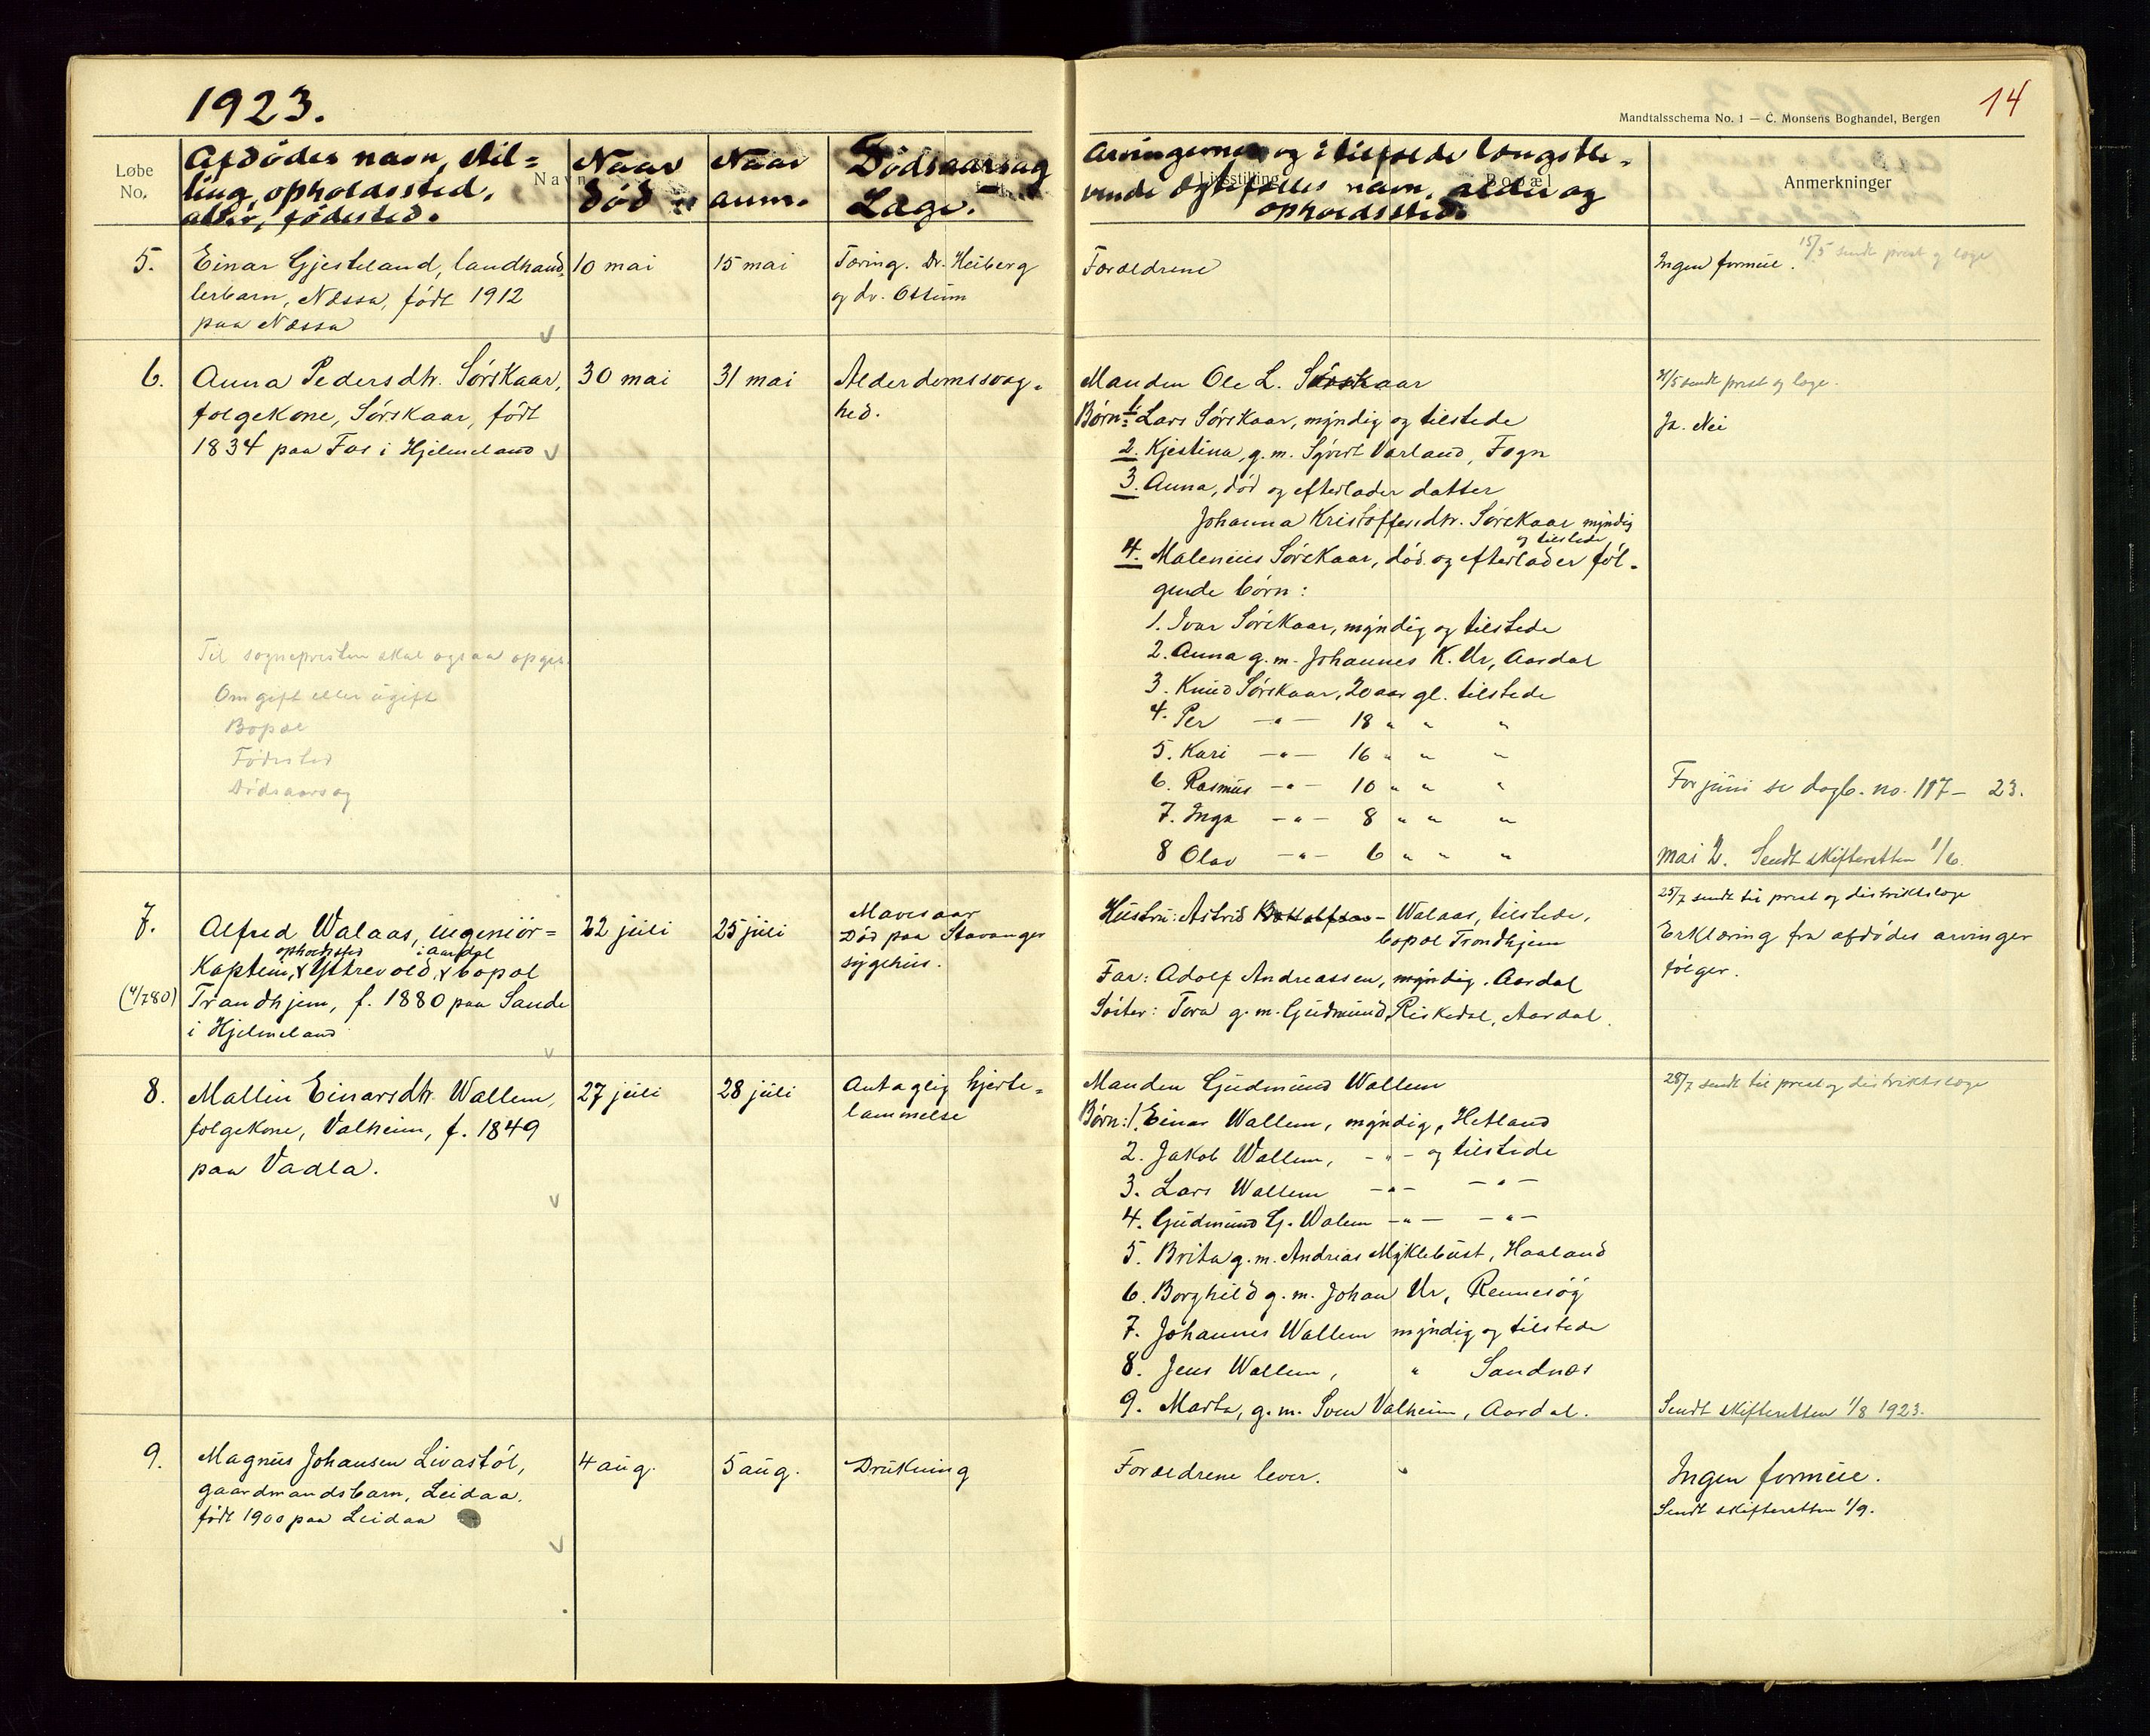 1923.
14
Mandtalsschema No. 1 — C. Monsens Boghandel, Bergen
Løbe No.
Navn
Afdödes navn, stil=
ling, opholdssted,
alder, fødested.
Naar
död
Naar
anm.
Dödsaarsag
Læge.
Arvingernes og i tilfælde længstle-
vende ægtefælles navn, alder og
opholdssted.
Livsstilling
Bopæl
Anmerkninger
5.
Einar Gjesteland, landhand-
lerbarn, Næssa, födt 1912
paa Næssa
10 mai
15 mai
Tæring. Dr. Heiberg
og dr. Ottum
Forældrene
Ingen formue.
15/5 sendt prest og læge
6.
Anna Pedersdtr. Sörskaar,
folgekone, Sörskaar, födt
1834 paa Fos i Hjelmeland
30 mai
31 mai
Alderdomssvag-
hed.
Manden Ole L. Sörskaar
Börn: 1. Lars Sörskaar, myndig og tilstede
2. Kjestina, g.m. Syvert Varland, Fogn
3. Anna, död og efterlader datter
Johanna Kristoffersdtr. Sörskaar myndig
og tilstede
4. Malenius Sörskaar, död og efterlader föl-
gende börn:
1. Ivar Sörskaar, myndig og tilstede
2. Anna g.m. Johannes K. Ur, Aardal
3. Knud Sörskaar, 20 aar gl. tilstede
4. Per —"— 18 " " "
5. Kari —"— 16 " " "
6. Rasmus —"— 10 " " "
7. Inga —"— 8 " " "
8 Olav —"— 6 " " "
31/5 sendt prest og læge.
Ja. Nei
For juni se dagb. no. 117 – 23.
mai 2. Sendt skifteretten 1/6.
Til sognepresten skal ogsaa opgis
Om gift eller ugift
Bopæl
Födested
Dödsaarsag
7.
Alfred Walaas, ingeniör=
opholdssted i Aardal
Kaptein, x Ytrevold, x bopæl
Trondhjem, f. 1880 paa Sande
i Hjelmeland
22 juli
25 juli
Mavesaar
Död paa Stavanger
sygehus.
Hustru: Astrid Walaas, tilstede,
bopæl Trondhjem
Far: Adolf Andreassen, myndig. Aardal
Söster: Tora g.m. Gudmund Riskedal, Aardal.
25/7 sendt til prest og distriktslæge
Erklæring fra afdödes arvinger
fölger.
8.
Mallin Einarsdtr. Wallem,
folgekone, Valheim, f. 1849
paa Vadla.
27 juli
28 juli
Antaglig hjerte=
lammelse
Manden Gudmund Wallem
Börn: 1. Einar Wallem, myndig, Hetland
2. Jakob Wallem, - " - og tilstede
3. Lars Wallem —"— —"—
4. Gudmund G. Walem —"— —"—
5. Brita g.m. Andreas Myklebust, Haaland
6. Borghild g.m. Johan Ur, Rennesöy
7. Johannes Wallem myndig og tilstede
8. Jens Wallem, " Sandnæs
9. Marta, g.m. Sven Valheim, Aardal.
28/7 sendt til prest og distriktslæge
Sendt skifteretten 1/8 1923.
9.
Magnus Johansen Livastöl,
gaardmandsbarn, Leidaa,
födt 1900 paa Leidaa
4 aug.
5 aug.
Drukning
Forældrene lever.
Ingen formue.
Sendt skifteretten 1/9.